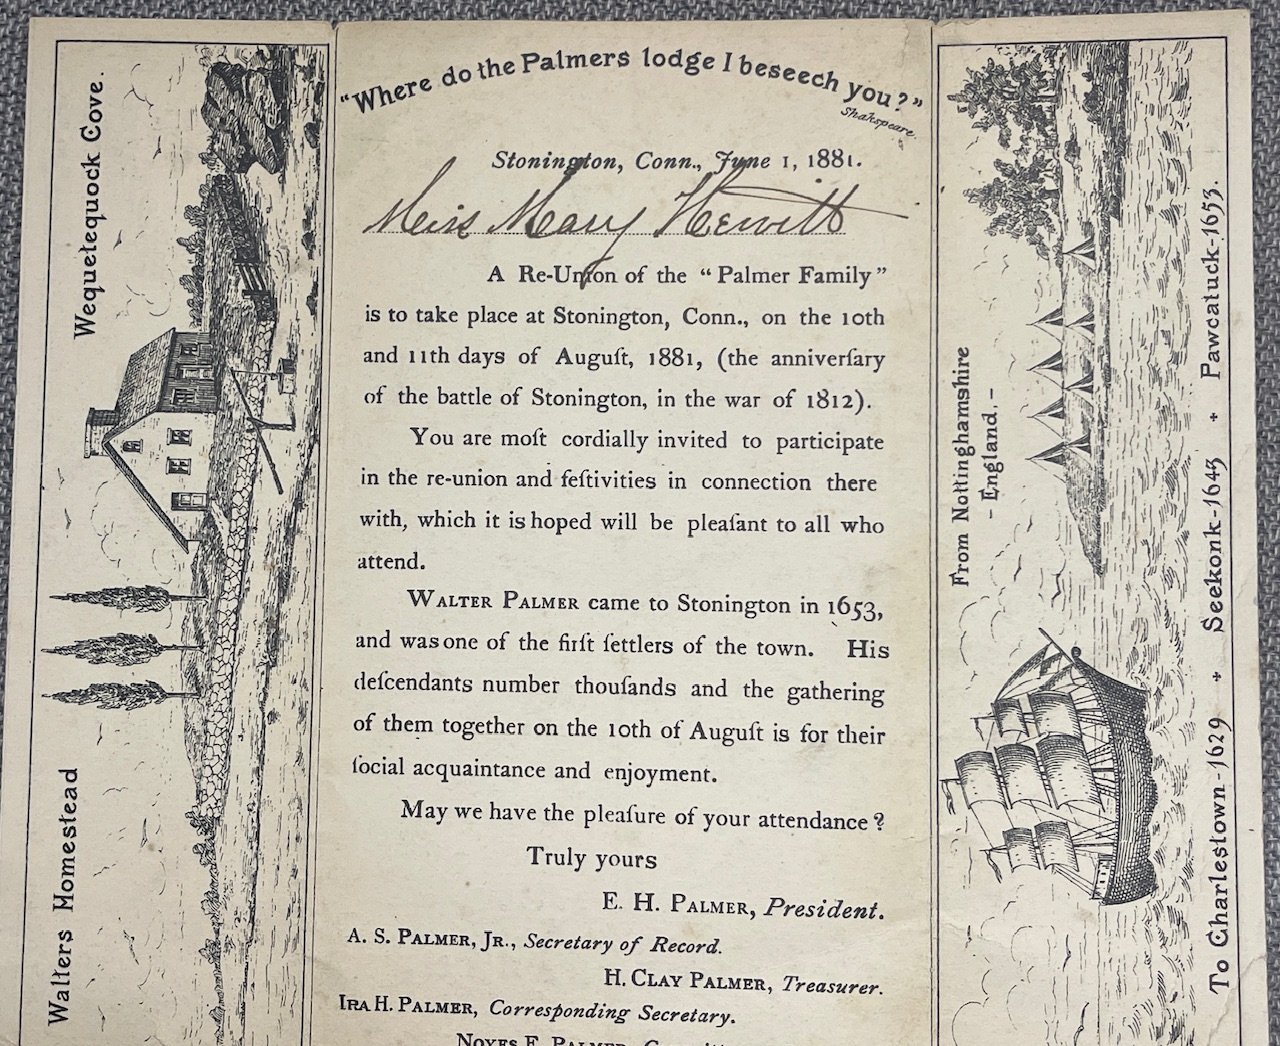 "Where do the Palmers lodge I beseech you?"
Shakspeare.
Stonington, Conn., June 1, 1881.
Miss Mary Hewitt
A Re-Union of the "Palmer Family"
is to take place at Stonington, Conn., on the 10th
and 11th days of Auguſt, 1881, (the anniverſary
of the battle of Stonington, in the war of 1812).
You are moſt cordially invited to participate
in the re-union and feſtivities in connection there
with, which it is hoped will be pleaſant to all who
attend.
Walter Palmer came to Stonington in 1653,
and was one of the firſt ſettlers of the town. His
deſcendants number thouſands and the gathering
of them together on the 10th of Auguſt is for their
ſocial acquaintance and enjoyment.
May we have the pleaſure of your attendance?
Truly yours
E. H. Palmer, President.
A. S. Palmer, Jr., Secretary of Record.
H. Clay Palmer, Treasurer.
Ira H. Palmer, Corresponding Secretary.
Noyes F. Palmer,
Walters Homestead
Wequetequock Cove.
From Nottinghamshire
- England, -
To Charlestown - 1629 + Seekonk - 1645 + Pawcatuck - 1653.